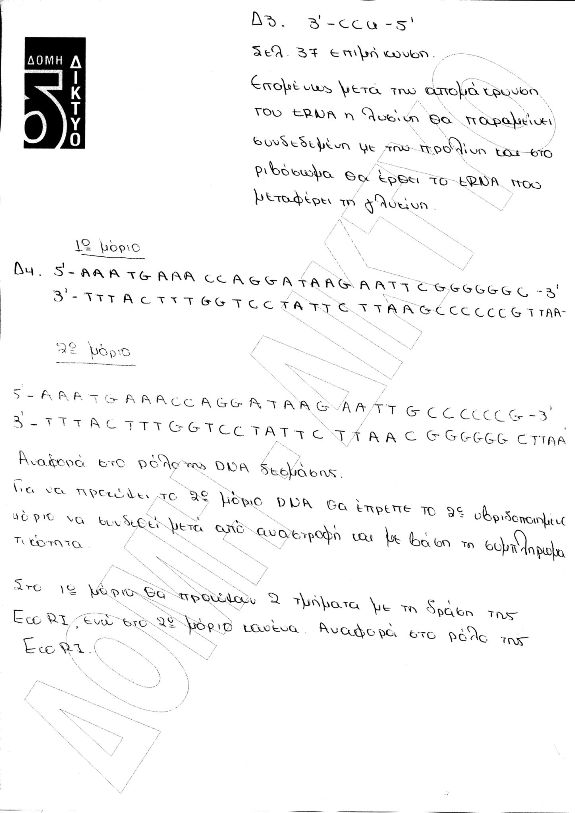 ΔΟΜΗ
ΔΙΚΤΥΟ
Δ3. 3'-CCU-5'
Σελ. 37 επιμήκυνση.
Επομένως μετά την απομάκρυνση
του tRNA η λυσίνη θα παραμείνει
συνδεδεμένη με την προλίνη και στο
ριβόσωμα θα έρθει το tRNA που
μεταφέρει τη γλυκίνη.
1º μόριο
Δ4. 5'-AAATGAAACCAGGATAAGAATTCGGGGGGC-3'
3'-TTTACTTTGGTCCTATTCTTAAGCCCCCCGTTAA-
2º μόριο
5'-AAATGAAACCAGGATAAGAATTGCCCCCCG-3'
3'-TTTACTTTGGTCCTATTCTTAACGGGGGGCTTAA
Αναφορά στο ρόλο της DNA δεσμάσης.
Για να προκύψει το 2º μόριο DNA θα έπρεπε το 2º υβριδοποιημένο
μόριο να συνδεθεί μετά από αναστροφή και με βάση τη συμπληρωμα
τικότητα.
Στο 1º μόριο θα προκύψουν 2 τμήματα με τη δράση της
EcoRI, ενώ στο 2º μόριο κανένα. Αναφορά στο ρόλο της
EcoRI.
ΔΟΜΗ ΔΙΚΤΥΟ